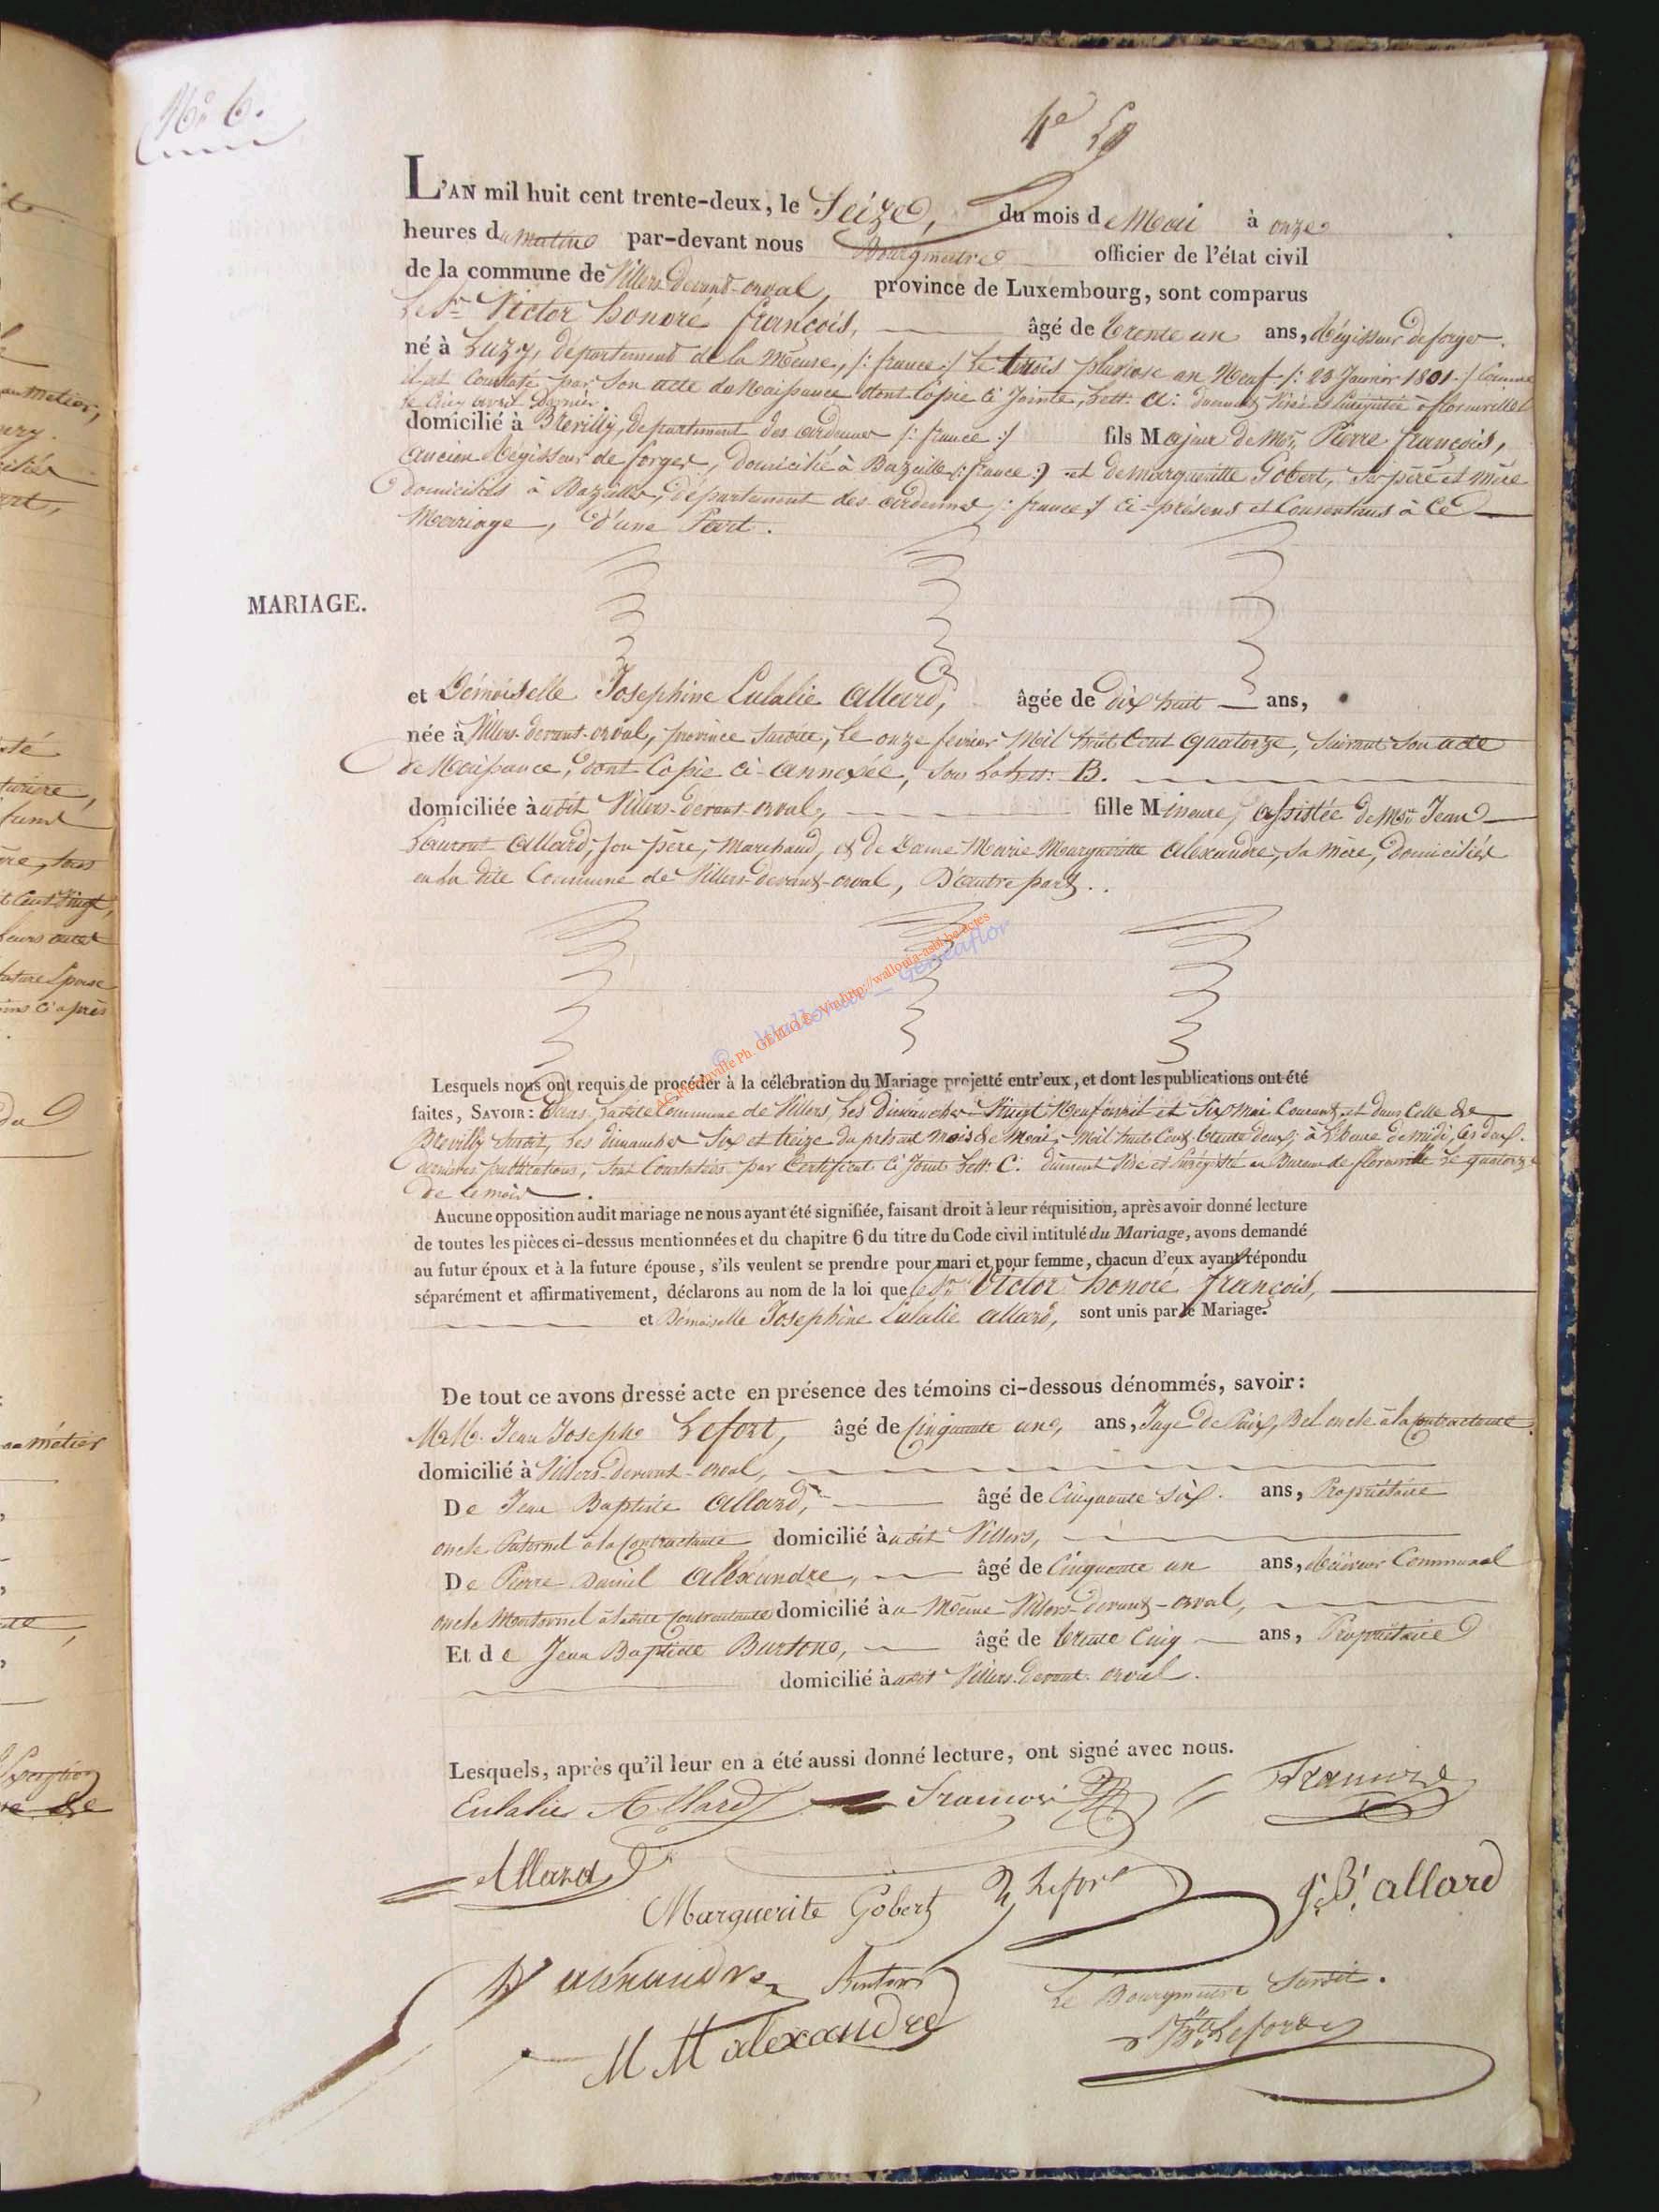 N.° 6.
4e
L'AN mil huit cent trente-deux, le Seize, du mois de Mai à onze
heures du matin par-devant nous Bourgmestre officier de l'état civil
de la commune de Villers-devant-orval, province de Luxembourg, sont comparus
Le Sr Victor honoré françois, âgé de trente un ans, Régisseur de forges
né à Luzy, département de la Meuse, /: france :/ Le trois pluviose an Neuf /: 23 Janvier 1801 :/ Comme
il est Constaté par Son acte de Naissance dont Copie ci Jointe, Lett: A: duement Visé et Enregistré à florenville
le Cinq avril dernier.
domicilié à Brevilly, département des ardennes /: france :/ fils Majeur de Mr. Pierre françois,
ancien Régisseur de forges, domicilié à Bazeille (: france :) et de margueritte Gobert, Ses père et mère
domiciliés à Bazeilles, département des ardennes /: france :/ ci-présens et Consentans à Ce
Mariage, d'une Part.
MARIAGE.
et Démoiselle Josephine Eulalie Allard, âgée de dix huit ans,
née à Villers-devant-orval, province Susdite, Le onze fevrier Mil huit Cent quatorze, Suivant Son acte
de Naissance, dont Copie ci-annexée, Sous La Lett: B.
domiciliée à udit Villers-devant-orval, fille Mineure, assistée de Mr. Jean
Laurent Allard, Son père, Marchand, et de Dame Marie Marguéritte Alexandre, Sa mère, domiciliés
en La dite Commune de Villers-devant-orval, D'autre part.
Lesquels nous ont requis de procéder à la célébration du Mariage projetté entr'eux, et dont les publications ont été
faites, SAVOIR: Dans Ladite Commune de Villers Les Dimanches Vingt Neuf avril et Six mai Courant, et dans Celle de
Brevilly Susdit, Les dimanches Six et treize du présent mois de Mai, Mil huit Cent trente deux, à L'heure de midi, Ces deux
dernières publications, Sont Constatées par Certificat ci Joint Lett: C. dûment Visé et Enrégistré au Bureau de florenville Le quatorze
de Ce mois.
Aucune opposition audit mariage ne nous ayant été signifiée, faisant droit à leur réquisition, après avoir donné lecture
de toutes les pièces ci-dessus mentionnées et du chapitre 6 du titre du Code civil intitulé du Mariage, avons demandé
au futur époux et à la future épouse, s'ils veulent se prendre pour mari et pour femme, chacun d'eux ayant répondu
séparément et affirmativement, déclarons au nom de la loi que le Sr. Victor honoré françois,
et Démoiselle Josephine Eulalie allard, sont unis par le Mariage.
De tout ce avons dressé acte en présence des témoins ci-dessous dénommés, savoir:
M.M. Jean Joseph Lefort, âgé de Cinquante un, ans, Juge de Paix, Bel oncle à la Contractante
domicilié à Villers-devant-orval,
De Jean Baptiste Allard, âgé de Cinquante Six. ans, Propriétaire
oncle Paternel à la Contractante domicilié à udit Villers,
De Pierre Daniel Aléxandre, âgé de Cinquante un ans, Réceveur Communal
oncle Maternel à ladite Contractante domicilié à u Même Villers-devant-orval,
Et de Jean Baptiste Burtone, âgé de trente Cinq ans, Propriétaire
domicilié à udit Villers-devant-orval.
Lesquels, après qu'il leur en a été aussi donné lecture, ont signé avec nous.
Eulalie Allard Francois Francois
Allard
Marguerite Gobert Lefort J. Bt. allard
alexandre
Le Bourgmestre Susdit.
M M alexandre
Lefort